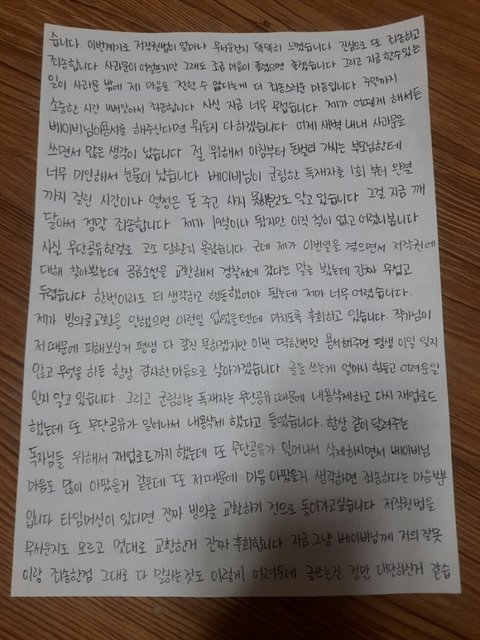 습니다. 이번계기로 저작권법이 얼마나 무서운건지 똑똑히 느꼈습니다. 진심으로 또 죄송하고
죄송합니다. 사과문이 어설프지만 그래도 조금 마음이 풀렸으면 좋겠습니다. 그리고 지금 할수있는
일이 사과문 밖에 제 마음을 전할 수 없다는게 더 죄송스러운 마음입니다. 주말까지
소중한 시간 빼앗아서 죄송합니다. 사실 지금 너무 무섭습니다. 제가 어떻게 해서든
베이비님이용서를 해주신다면 뭐든지 다하겠습니다. 어제 새벽 내내 사과문을
쓰면서 많은 생각이 났습니다. 절 위해서 아침부터 돈벌러 가시는 부모님한테
너무 미안해서 눈물이 났습니다. 베이비님이 군림한 독재자를 1회 부터 완결
까지 걸린 시간이나 열정은 돈 주고 사지 못하는것도 알고 있습니다. 그걸 지금 깨
달아서 정말 죄송합니다. 제가 19살이나 됬지만 아직 철이 없고 어렸나봅니다
사실 무단공유한걸로 고소 당할지 몰랐습니다. 근데 제가 이번일을 겪으면서 저작권에
대해 찾아봤는데 공유소설을 교환해서 경찰서에 갔다는 말을 봤는데 진짜 무섭고
두렵습니다. 한번이라도 더 생각하고 행동했어야 됬는데 제가 너무 어렸습니다.
제가 빙의글교환을 안했으면 이런일 없었을텐데 미치도록 후회하고 있습니다. 작가님이
저 때문에 피해보신거 평생 다 갚진 못하겠지만 이번 딱한번만 용서해주면 평생 이일 잊지
않고 무엇을 하든 항상 감사한마음으로 살아가겠습니다. 글을 쓰는게 얼마나 힘들고 어려운일
인지 알고 있습니다. 그리고 군림하는 독재자는 무단공유 때문에 내용삭제하고 다시 재업로드
했는데 또 무단공유가 일어나서 내용삭제 했다고 들었습니다. 항상 같이 달려주는
독자님들 위해서 재업로드까지 했는데 또 무단공유가 일어나서 삭제하시면서 베이비님
마음도 많이 아팠을거 같은데 또 저때문에 마음 아팠을거 생각하면 죄송하다는 마음뿐
입니다. 타임머신이 있다면 진짜 빙의글 교환하기 전으로 돌아가고싶습니다. 저작권법을
무서운지도 모르고 멋대로 교환한거 진짜 후회합니다. 지금 그냥 베이비님께 저의 잘못
이랑 죄송한점 그대로 다 말하는것도 이렇게 어려운데 글쓰는건 정말 대단하신거 같습